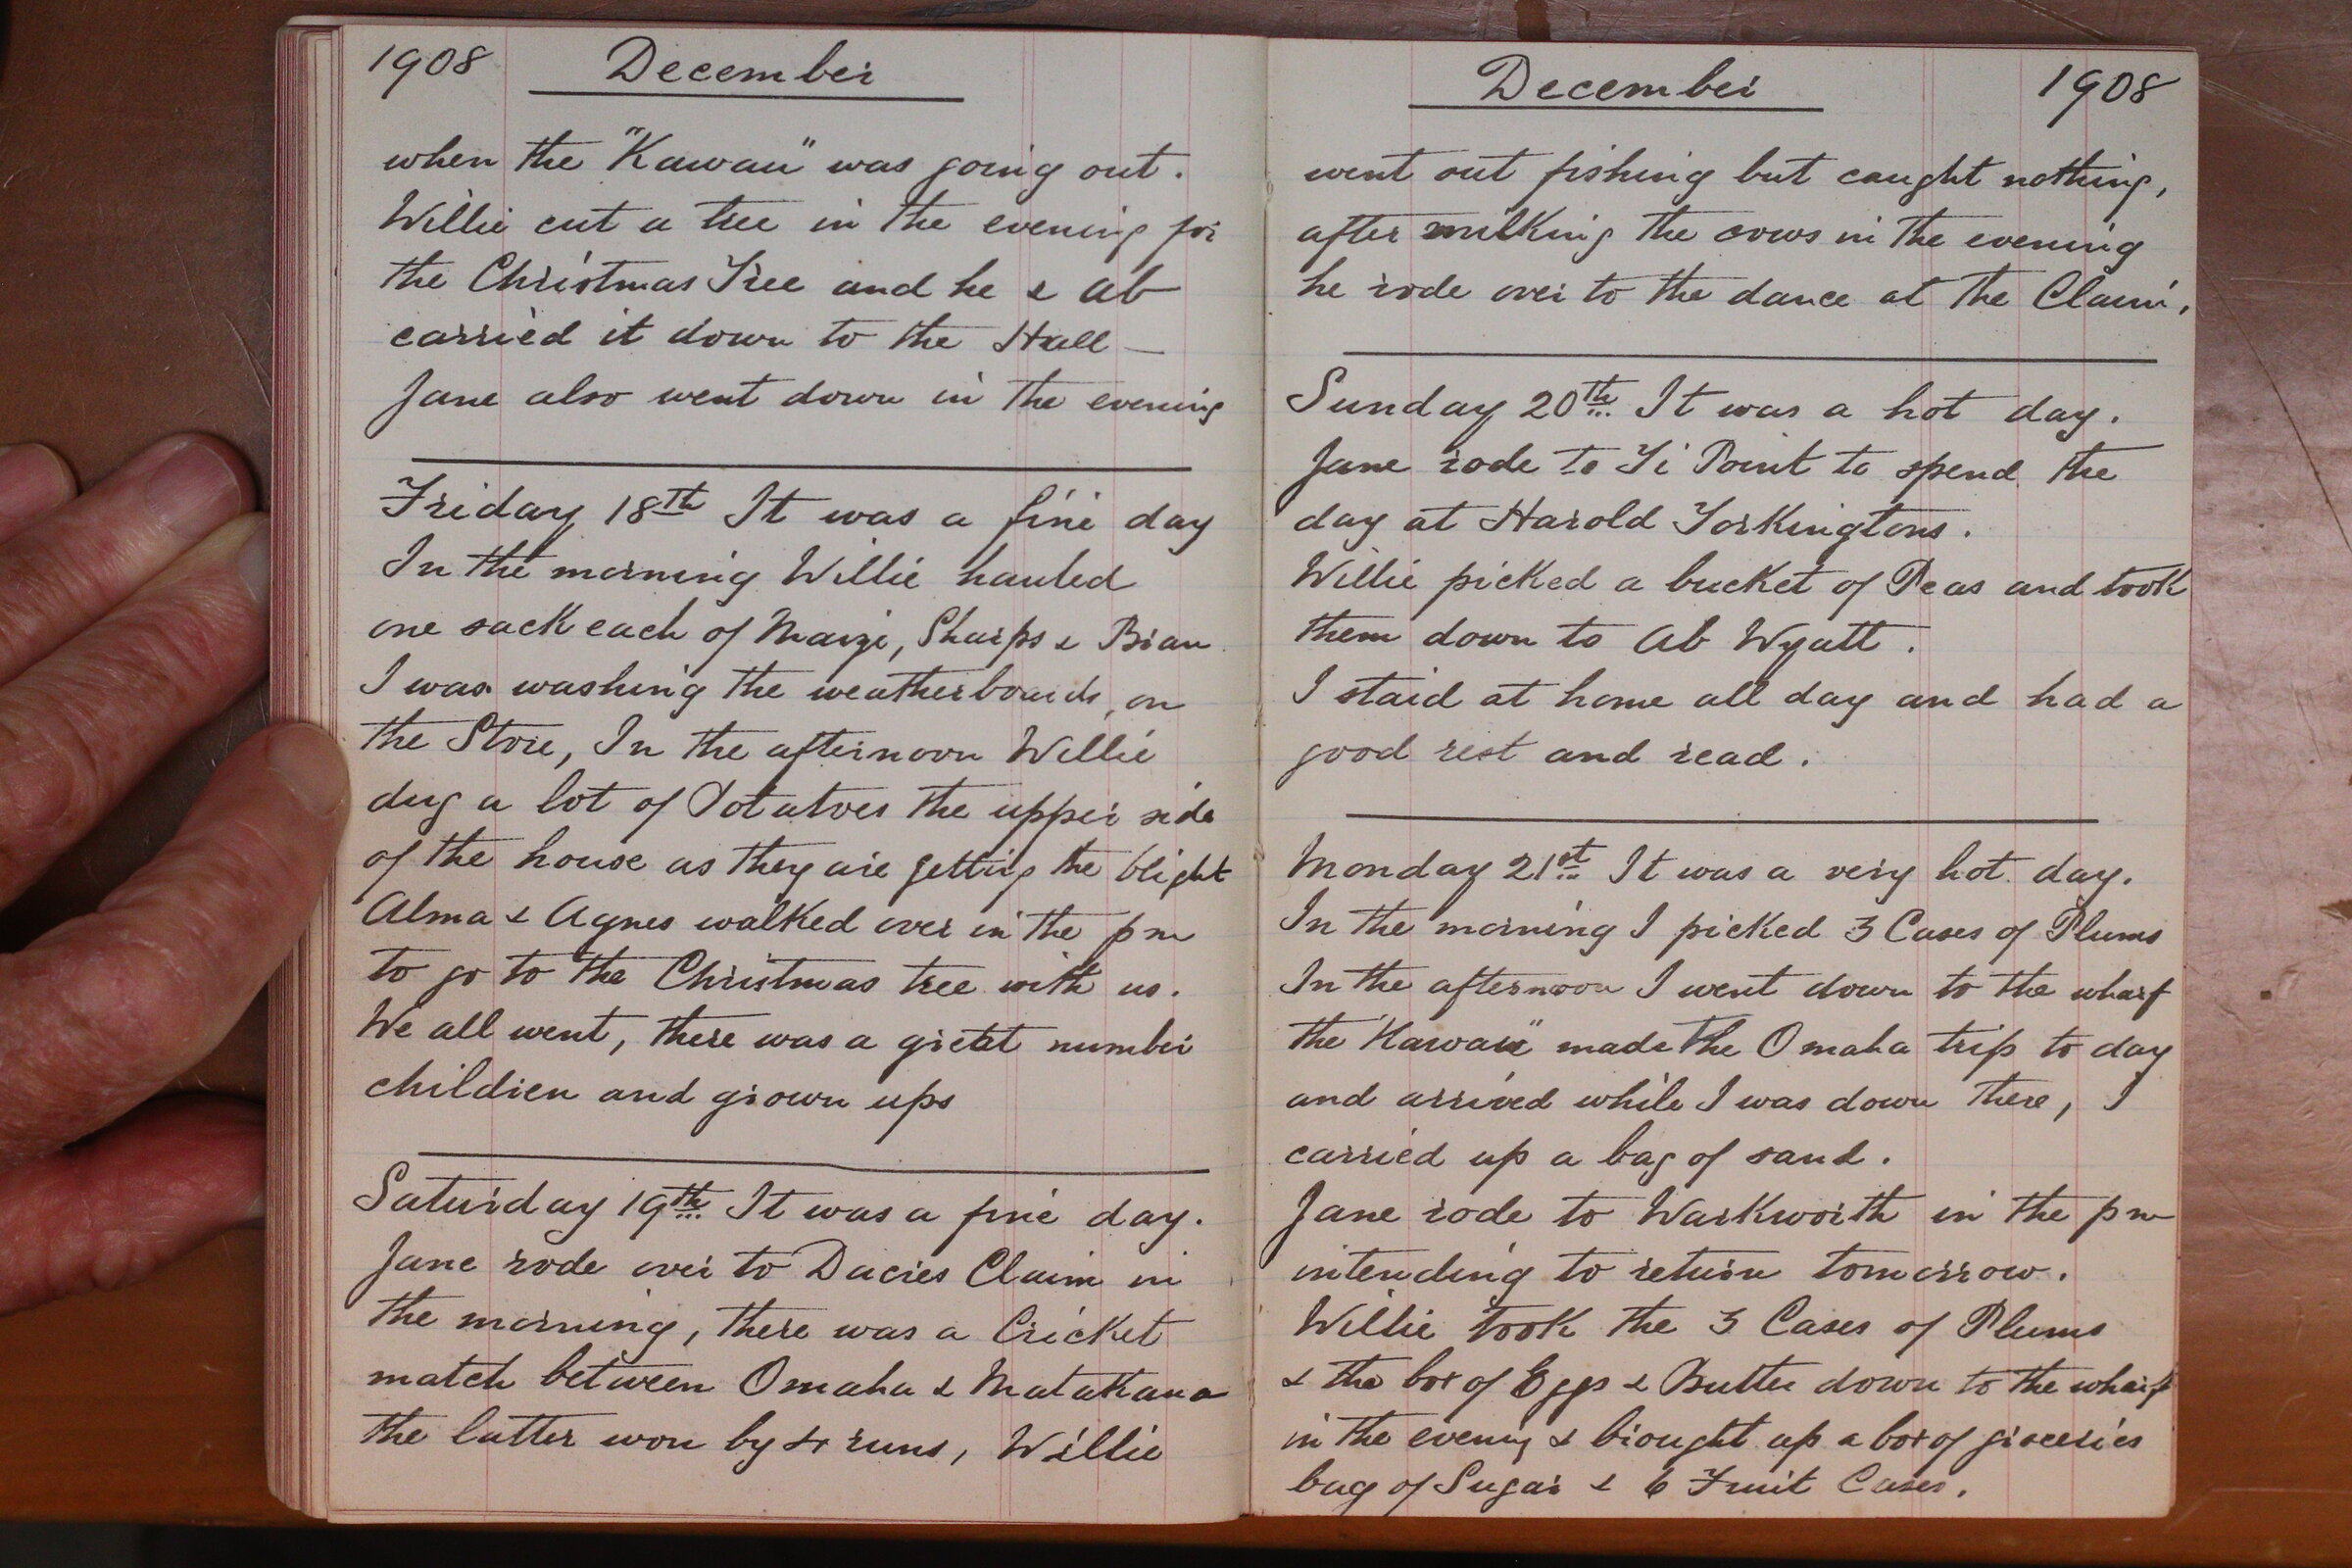 1908 December
when the "Kawau" was going out.
Willie cut a tree in the evening for
the Christmas Tree and he & Ab
carried it down to the Hall —
Jane also went down in the evening
Friday 18th It was a fine day
In the morning Willie hauled
one sack each of Maize, Sharps & Bran
I was washing the weatherboards on
the Store, In the afternoon Willie
dug a lot of Potatoes the upper side
of the house as they are getting the blight
Alma & Agnes walked over in the pm
to go to the Christmas tree with us.
We all went, there was a great number
children and grown ups
Saturday 19th It was a fine day.
Jane rode over to Dacres Claim in
the morning, there was a Cricket
match between Omaha & Matakana
the latter won by 4 runs, Willie
December 1908
went out fishing but caught nothing,
after milking the cows in the evening
he rode over to the dance at the Claim.
Sunday 20th It was a hot day.
Jane rode to Ti Point to spend the
day at Harold Torkingtons.
Willie picked a bucket of Peas and took
them down to Ab Wyatt.
I staid at home all day and had a
good rest and read.
Monday 21st It was a very hot day.
In the morning I picked 3 Cases of Plums
In the afternoon I went down to the wharf
the "Kawau" made the Omaha trip to day
and arrived while I was down there, I
carried up a bag of sand.
Jane rode to Warkworth in the pm
intending to return tomorrow.
Willie took the 3 Cases of Plums
& the box of Eggs & Butter down to the wharf
in the evening & brought up a box of groceries
bag of Sugar & 6 Fruit Cases.